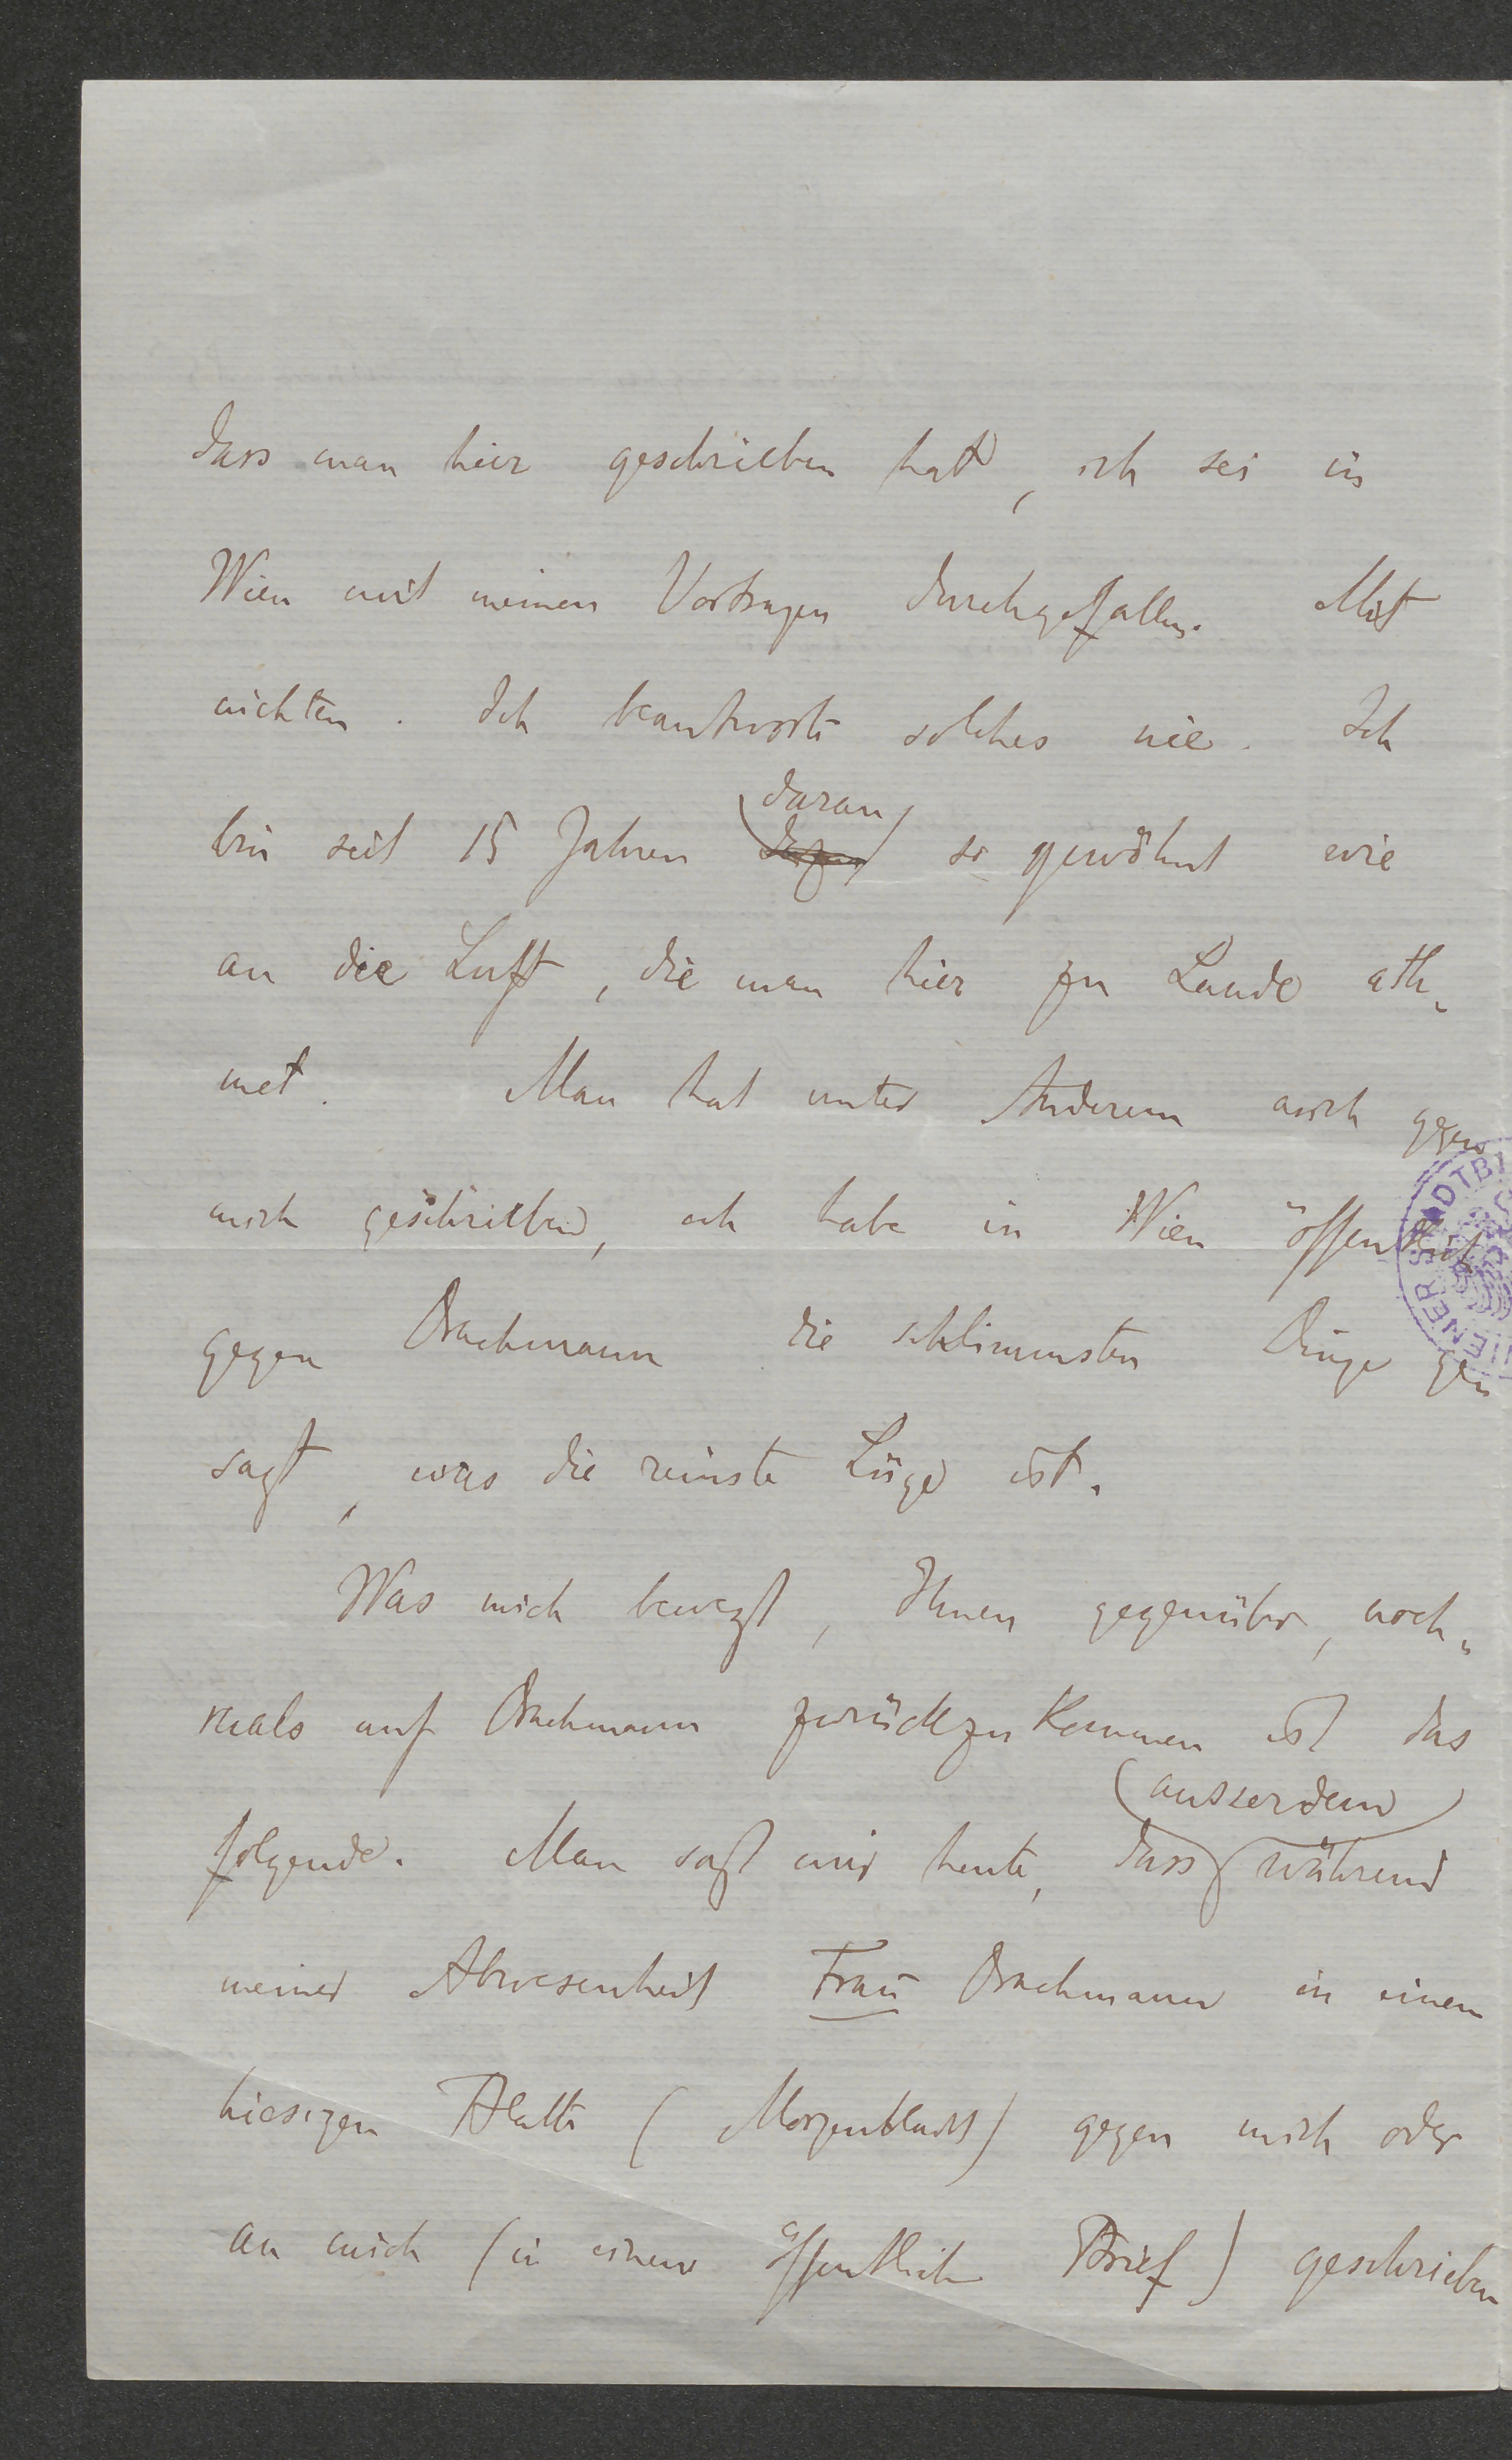 dass man hier geschrieben hat, ich sei in
Wien mit meinen Vortragen durchgefallen. Mit
nichten. Ich beantworte solches nie. Ich
daran
bin seit 15 Jahren so gewöhnt wie
an die Luft, die man hier zu Lande ath-
met. Man hat unter Anderem auch gegen
mich geschrieben, ich habe in Wien öffentlich
gegen Drachmann die schlimmsten Dinge ge-
sagt, was die reinste Lüge ist.
Was mich bewegt, Ihnen gegenüber, noch-
mals auf Drachmann zurückzukommen ist das
ausserdem
folgende. Man sagt mir heute, dass während
meiner Abwesenheit Frau Drachmann in einem
hiesigen Blatte (Morgenbladet) gegen mich oder
an mich (in einem öffentlichen Brief) geschrieben